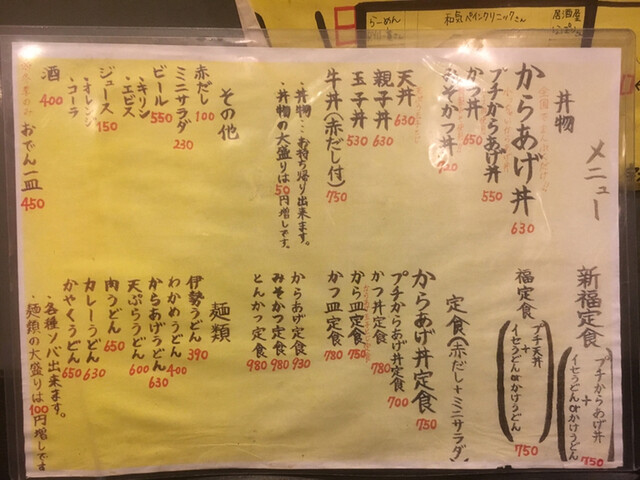 メニュー
丼物
からあげ丼 630
プチからあげ丼 550
かつ丼 650
みそかつ丼 720
天丼 630
親子丼 630
玉子丼 530
牛丼(赤だし付) 750
・丼物…お持ち帰り出来ます。
・丼物の大盛りは50円増しです。
その他
赤だし 100
ミニサラダ 230
ビール 550
・キリン
・エビス
ジュース 150
・オレンジ
・コーラ
酒 400
おでん一皿 450
新福定食
プチからあげ丼
+
イセうどんorかけうどん
750
福定食
プチ天丼
+
イセうどんorかけうどん
750
定食(赤だし+ミニサラダ)
からあげ丼定食 750
プチからあげ丼定食 700
かつ丼定食 780
から皿定食 750
かつ皿定食 780
からあげ定食 930
みそかつ定食 980
とんかつ定食 980
麺類
伊勢うどん 390
わかめうどん 400
からあげうどん 630
天ぷらうどん 600
肉うどん 650
カレーうどん 630
かやくうどん 650
・各種ソバ出来ます。
・麺類の大盛りは100円増しです
らーめん
和気ペインクリニックさん
居酒屋